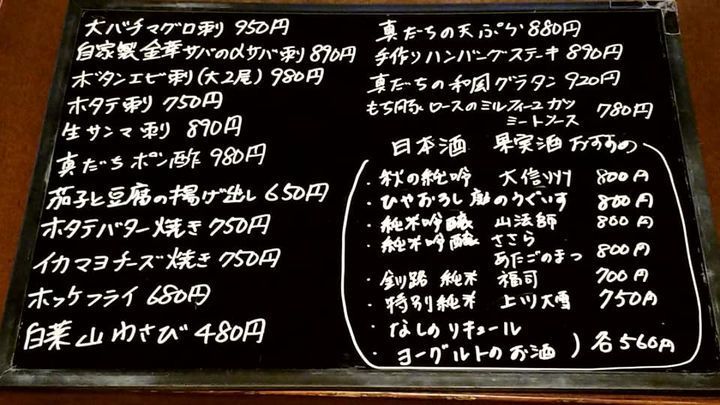 大バチマグロ刺 950円
自家製金華サバのαサバ刺 890円
ボタンエビ刺(大2尾) 980円
ホタテ刺 750円
生サンマ刺 890円
真だちポン酢 980円
茄子と豆腐の揚げ出し 650円
ホタテバター焼き 750円
イカマヨチーズ焼き 750円
ホッケフライ 680円
白菜山わさび 480円
真だちの天ぷら 880円
手作りハンバーグステーキ 890円
真だちの和風グラタン 920円
もち豚ロースのミルフィーユカツ
ミートソース 780円
日本酒 果実酒 おすすめ
・秋の純吟 大信州 800円
・ひやおろし 庭のうぐいす 800円
・純米吟醸 山法師 800円
・純米吟醸 ささら
あたごのまつ 800円
・釧路 純米 福司 700円
・特別純米 上川大雪 750円
・なしのリキュール
・ヨーグルトのお酒 ) 各560円